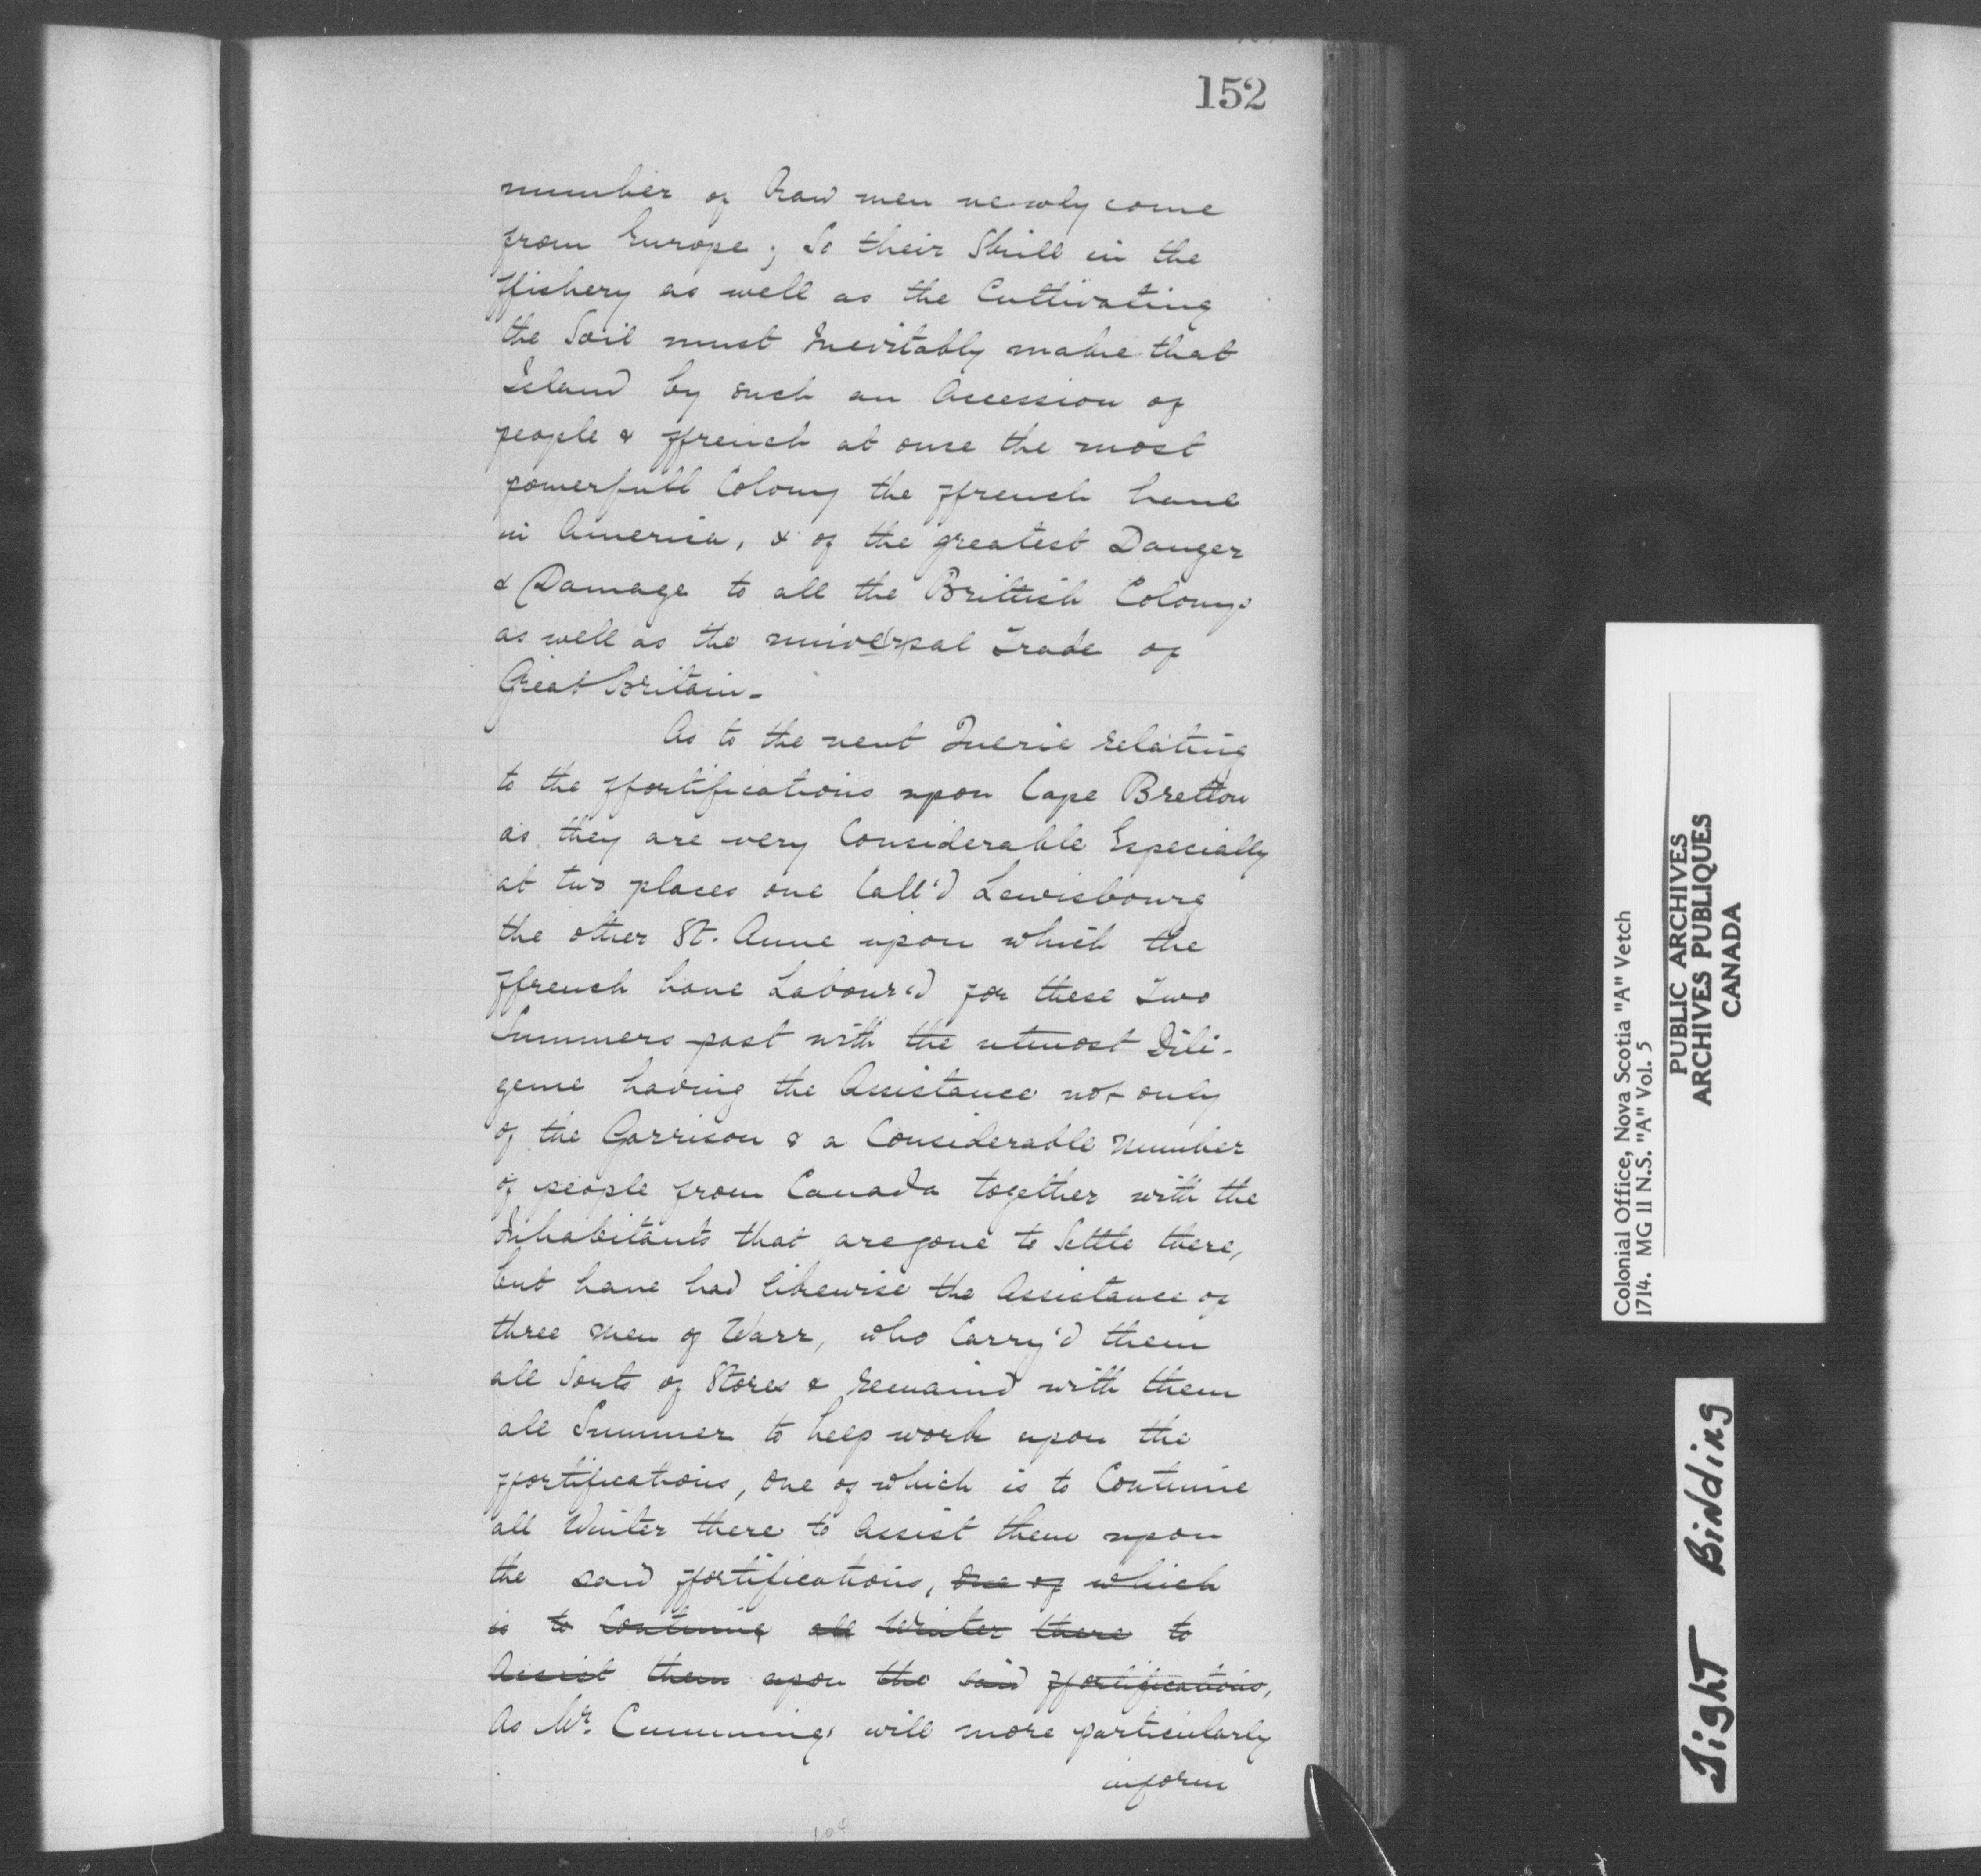 152
number of Raw men newly come
from Europe; So their Skill in the
ffishery as well as the Cultivating
the Soil must Inevitably make that
Island by such an Accession of
people & ffrench at once the most
powerfull Colony the ffrench have
in America, & of the greatest Danger
& Damage to all the Brittish Colonys
as well as the universal Trade of
Great Britain-
As to the next Querie relating
to the ffortifications upon Cape Bretton
as they are very Considerable Especially
at two places one Call'd Lewisbourg
the other St. Anne upon which the
ffrench have Labour'd for these Two
Summers past with the utmost Dili-
gence having the Assistance not only
of the Garrison & a Considerable Number
of people from Canada together with the
Inhabitants that are gone to Settle there,
but have had likewise the Assistance of
three Men of Warr, who Carry'd them
all Sorts of Stores & remaind with them
all Summer to help work upon the
ffortifications, One of which is to Continue
all Winter there to Assist them upon
the said ffortifications, One of which
is to Continue all Winter there to
Assist them upon the said ffortifications,
As Mr. Cummings will more particularly
inform
104
Colonial Office, Nova Scotia "A" Vetch
1714. MG 11 N.S. "A" Vol. 5
PUBLIC ARCHIVES
ARCHIVES PUBLIQUES
CANADA
Tight Binding